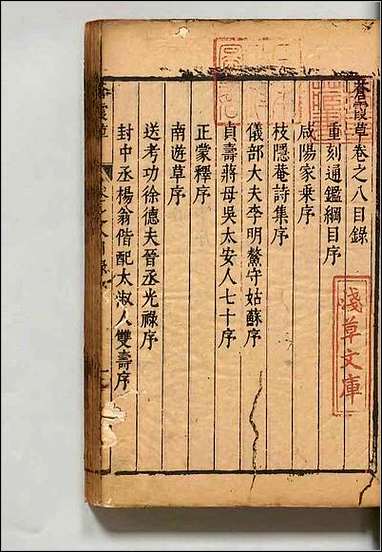 蒼霞草卷之八目錄
重刻通鑑綱目序
咸陽家乘序
枝隱菴詩集序
儀部大夫李明鰲守姑蘇序
貞壽蔣母吳太安人七十序
正蒙釋序
南遊草序
送考功徐德夫晉丞光祿序
封中丞楊翁偕配太淑人雙壽序
淺草文庫